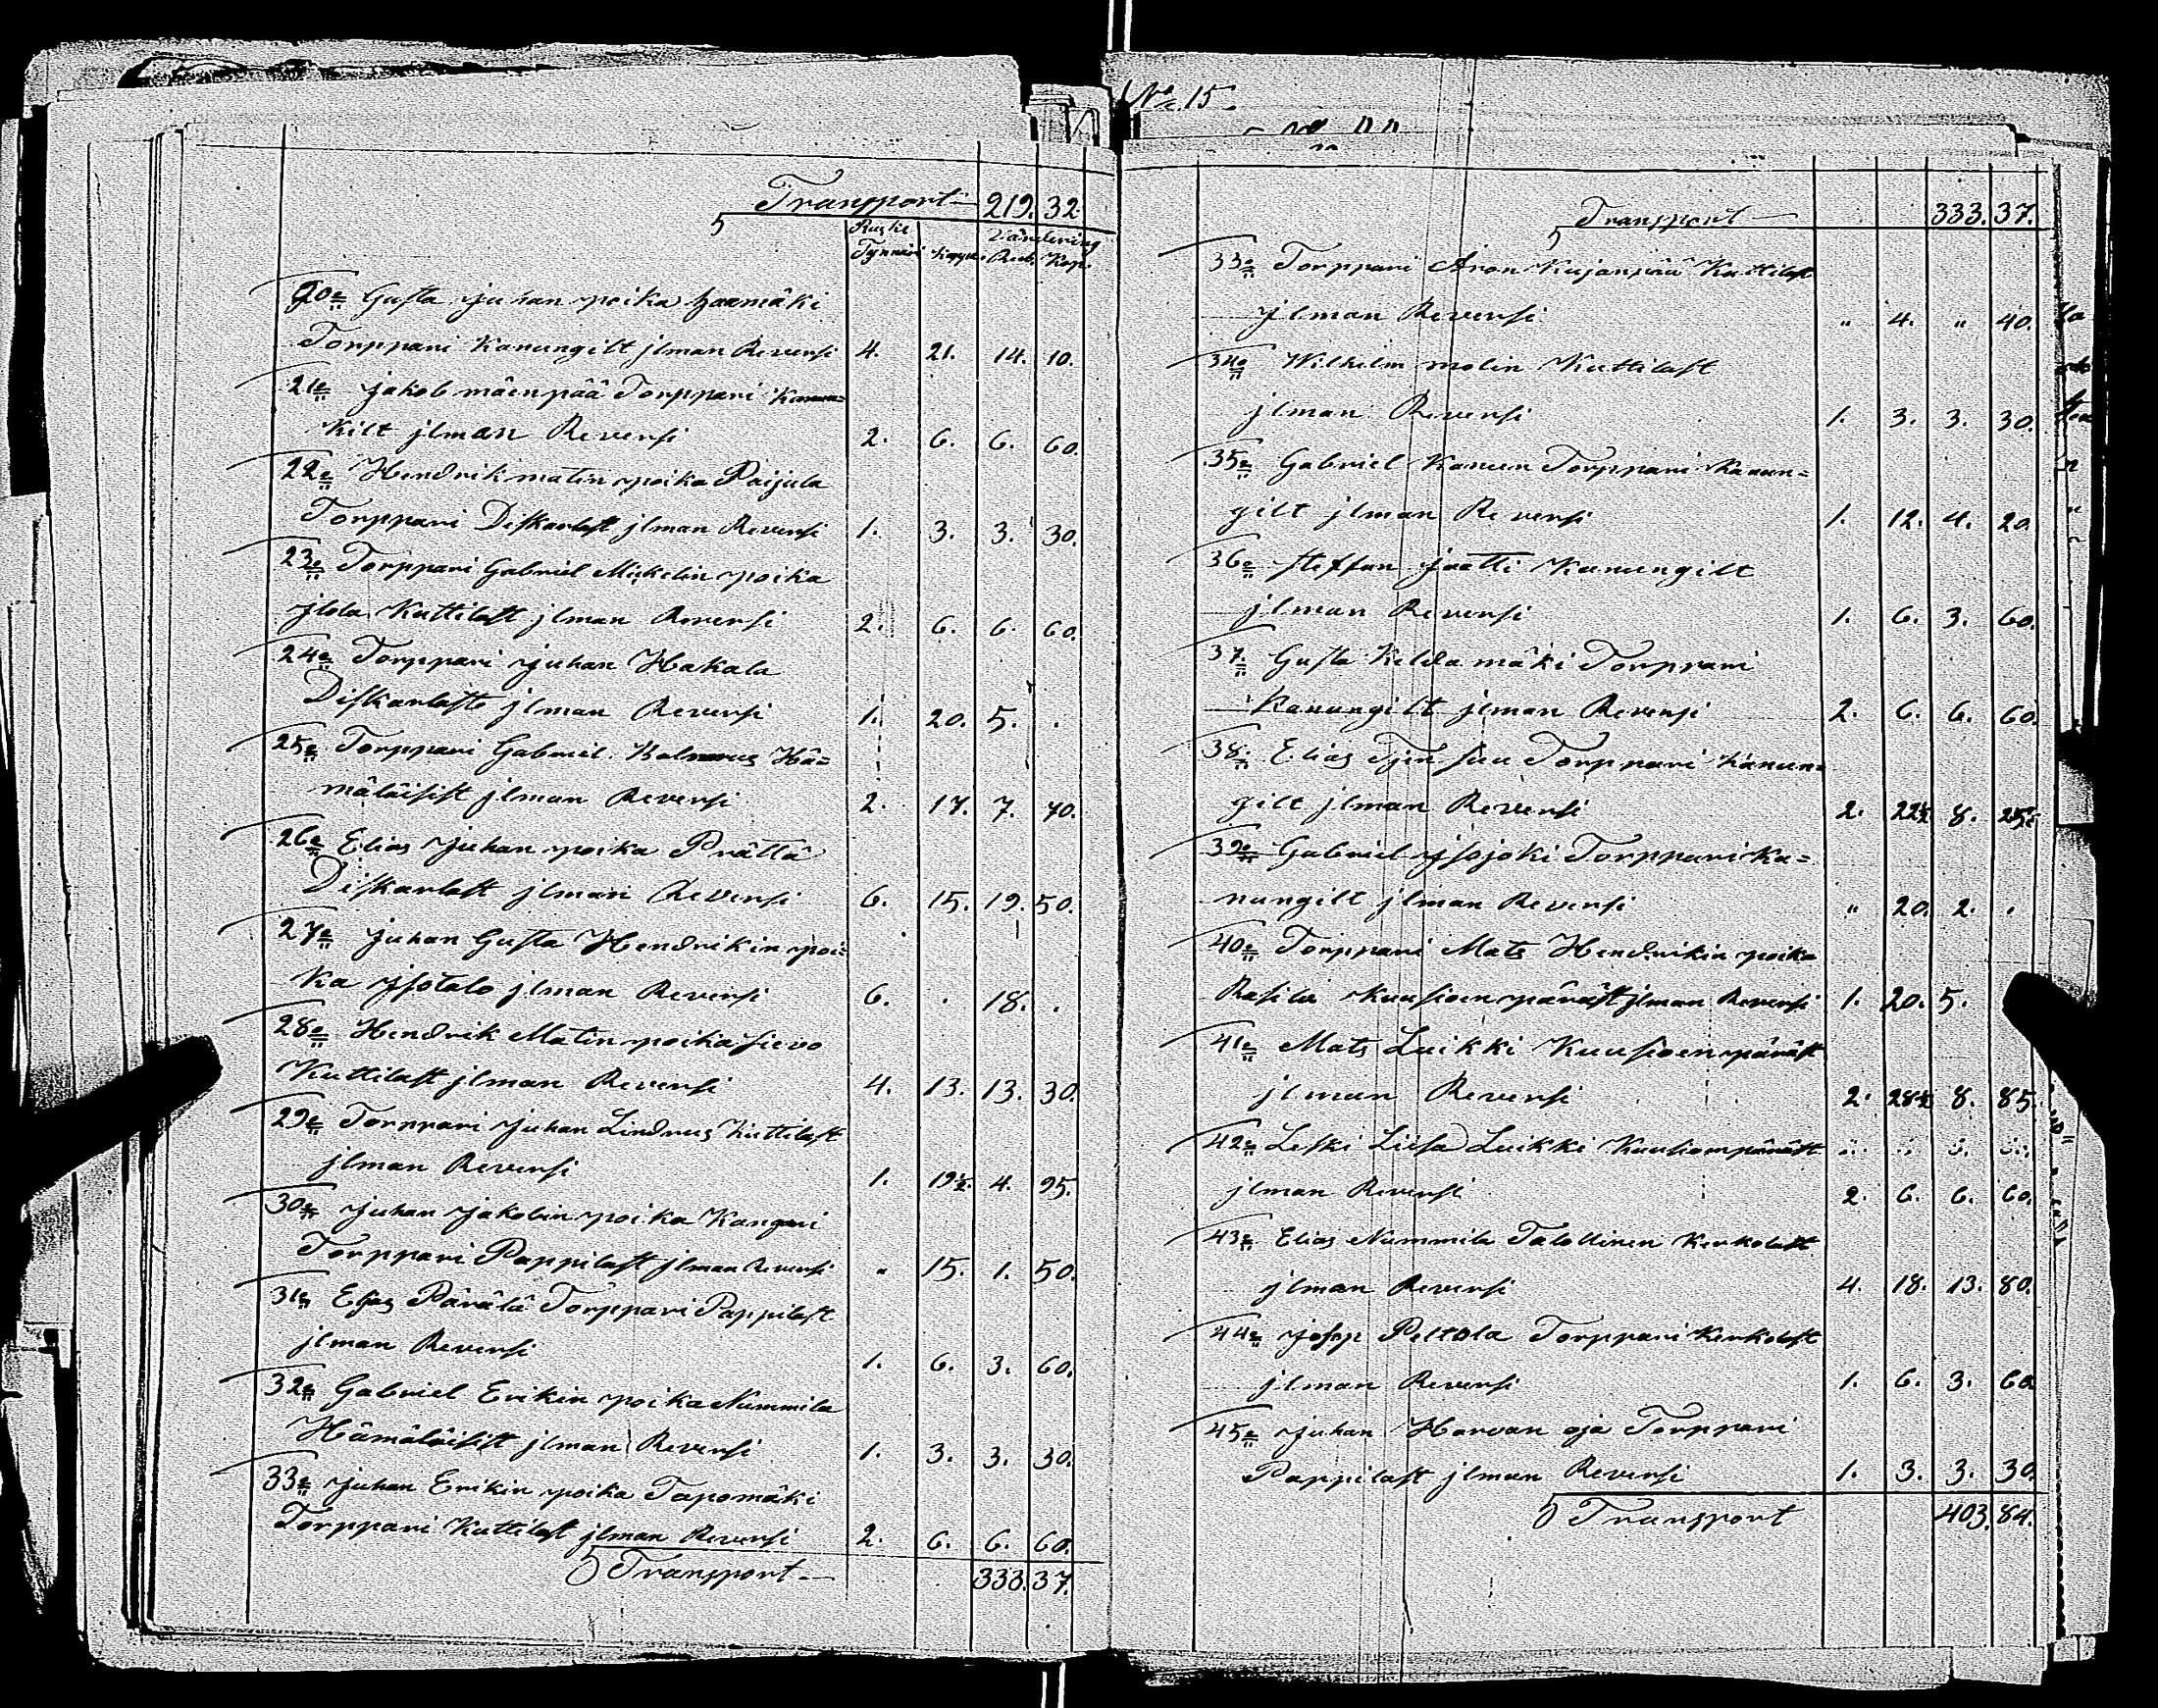 Transport 219. 32
Ruski Värdering
Tynnüri Kappa Rub. Kop.
20e Gusta Juhan poika Haamäki
Torppari Kanungilt jlman Reversi 4. 21. 14. 10.
21e Jakob mäenpää Torppari Kanun=
kilt jlman Reversi 2. 6. 6. 60.
22e Hendrik matin poika Paijula
Torppari Diskarlast jlman Reversi 1. 3. 3. 30.
23e Torppari Gabriel Mickelin poika
jlola Kuttilast jlman Reversi 2. 6. 6. 60.
24e Torppari Juhan Hakala
Diskarlasto jlman Reversi 1. 20. 5. .
25e Torppari Gabriel Kalmus Hä=
mäläisist jlman Reversi 2. 17. 7. 70.
26e Elias Juhan poika Prättä
Diskarlast jlman Reversi 6. 15. 19. 50.
27e Juhan Gusta Hendrikin poi=
ka Jsotalo jlman Reversi 6. . 18. .
28e Hendrik Matin poika Sievo
Kuttilast jlman Reversi 4. 13. 13. 30.
29e Torppari Juhan Lindrus Kuttilast
jlman Reversi 1. 19½. 4. 95.
30e Juhan Jakobin poika Kangari
Torppari Pappilast jlman Reversi " 15. 1. 50.
31e Elias Pärälä Torppari Pappilast
jlman Reversi 1. 6. 3. 60.
32e Gabriel Erikin poika Nummila
Hämäläisist jlman Reversi 1. 3. 3. 30.
33e Juhan Erikin poika Tapomäki
Torppari Kuttilast jlman Reversi 2. 6. 6. 60.
Transport 333. 37.
No. 15.
Transport 333. 37.
33e Torppari Aron Kujanpää Kuttilast
jlman Reversi " 4. " 40.
34e Wilhelm molin Kuttilast
jlman Reversi 1. 3. 3. 30.
35e Gabriel Kanun Torppari Kanun=
gilt jlman Reversi 1. 12. 4. 20.
36e Steffan Jaatti Kanungilt
jlman Reversi 1. 6. 3. 60.
37. Gusta Kelda mäki Torppari
Kanungilt jlman Reversi 2. 6. 6. 60.
38. Elias Tjen suu Torppari Kanun=
gilt jlman Reversi 2. 22½ 8. 25.
39e Gabriel Jsojoki Torppari Ka=
nungilt jlman Reversi " 20. 2. .
40e Torppari Mats Hendrikin poika
Rasila Kuusioen pärast jlman Reversi 1. 20. 5.
41e Mats Luikki Kuusioen päräst
jlman Reversi 2. 28½ 8. 85.
42e Leski Liisa Luikki Kuusioenpäräst
jlman Reversi 2. 6. 6. 60.
43e Elias Nummila Talollinen Kerkolast
jlman Reversi 4. 18. 13. 80.
44e Josep Peltola Torppari Kerkolast
jlman Reversi 1. 6. 3. 60
45e Juhan Harvan oja Torppari
Pappilast jlman Reversi 1. 3. 3. 30.
Transport 403. 84.